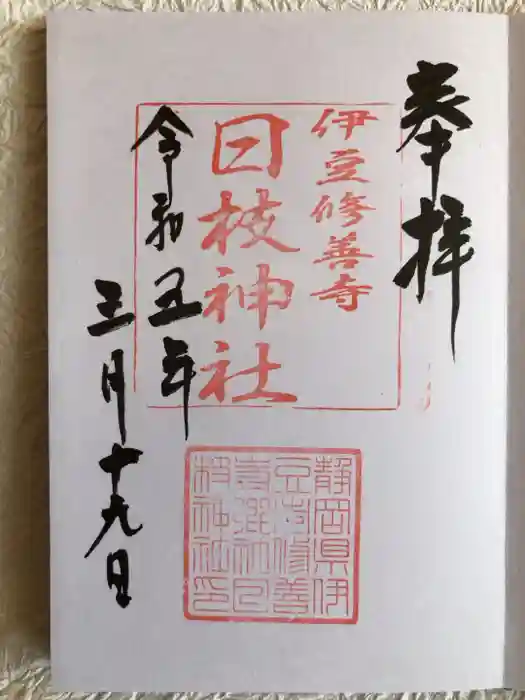 奉拝
伊豆修善寺
日枝神社
令和五年
三月十九日
静岡県伊
豆市修善
寺
枝神社印